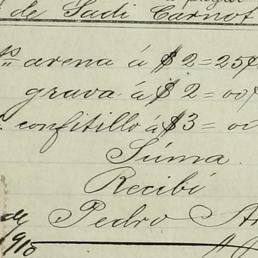 de Sadi Carnot
arena á $2=25¢
grava á $2=00
confitillo á $3=
Súma
Recibí
de Pedro
1910